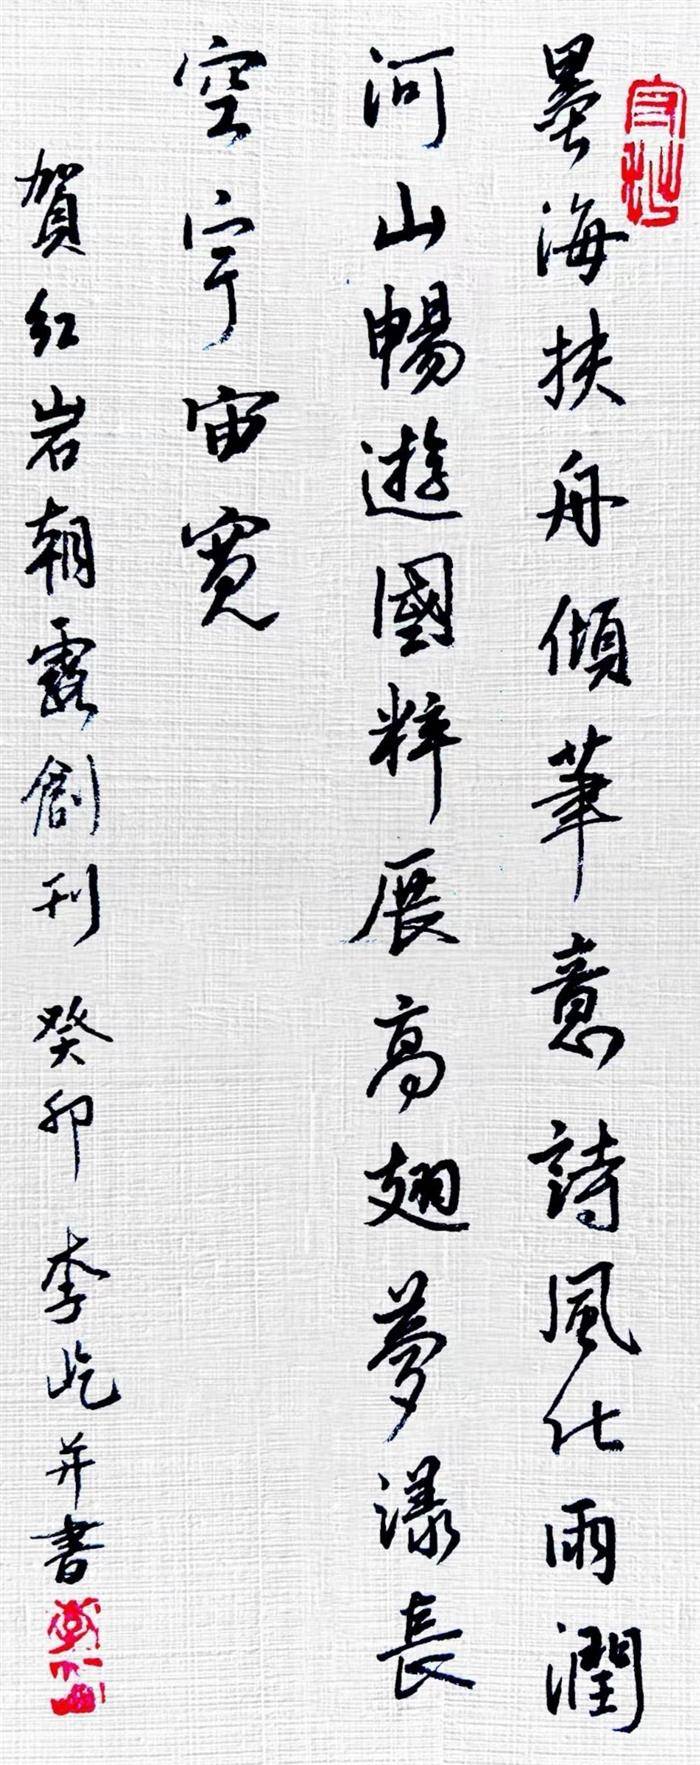 墨海扶舟傾筆意詩風化雨潤
河山暢遊國粹展高翅夢漾長
空宇宙寬
賀红岩朝露創刊 癸卯 李屹并書